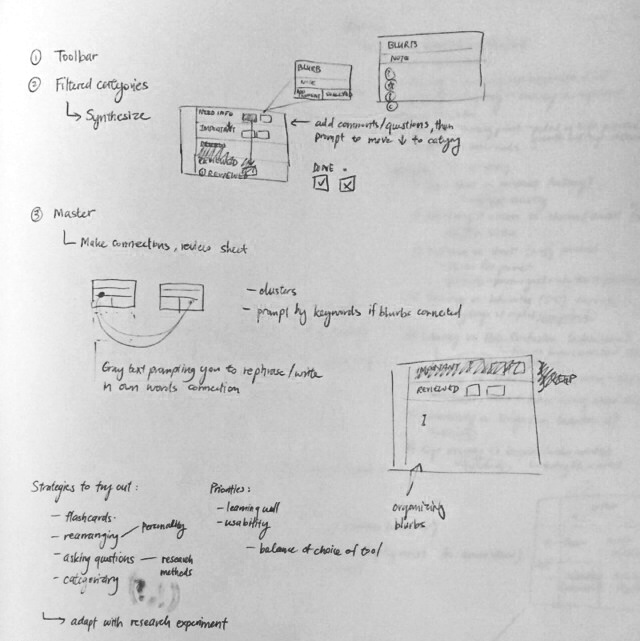 ① Toolbar
② Filtered categories
↳ Synthesize
BLURB
NOTE
BLURB
NOTE
NEED INFO
IMPORTANT
REVIEWED
REVIEWED
← add comments/questions, then
prompt to move ↓ to category
DONE
③ Master
↳ Make connections, review sheet
- clusters
- prompt by keywords if blurbs connected
Gray text prompting you to rephrase/write
in own words connection
IMPORTANT
REVIEWED
organizing
blurbs
Strategies to try out:
- flashcards
- rearranging — personality
- asking questions — research
methods
- categorizing
↳ adapt with research experiment
Priorities:
- learning well
- usability
- balance of choice of tool